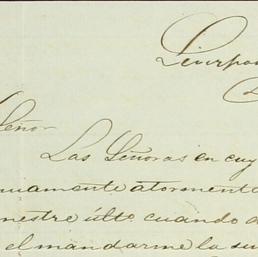 Liverpoo
Señor
Las Señoras en cuy
nuamente atorment
mestre últo. cuando
el mandarme la su